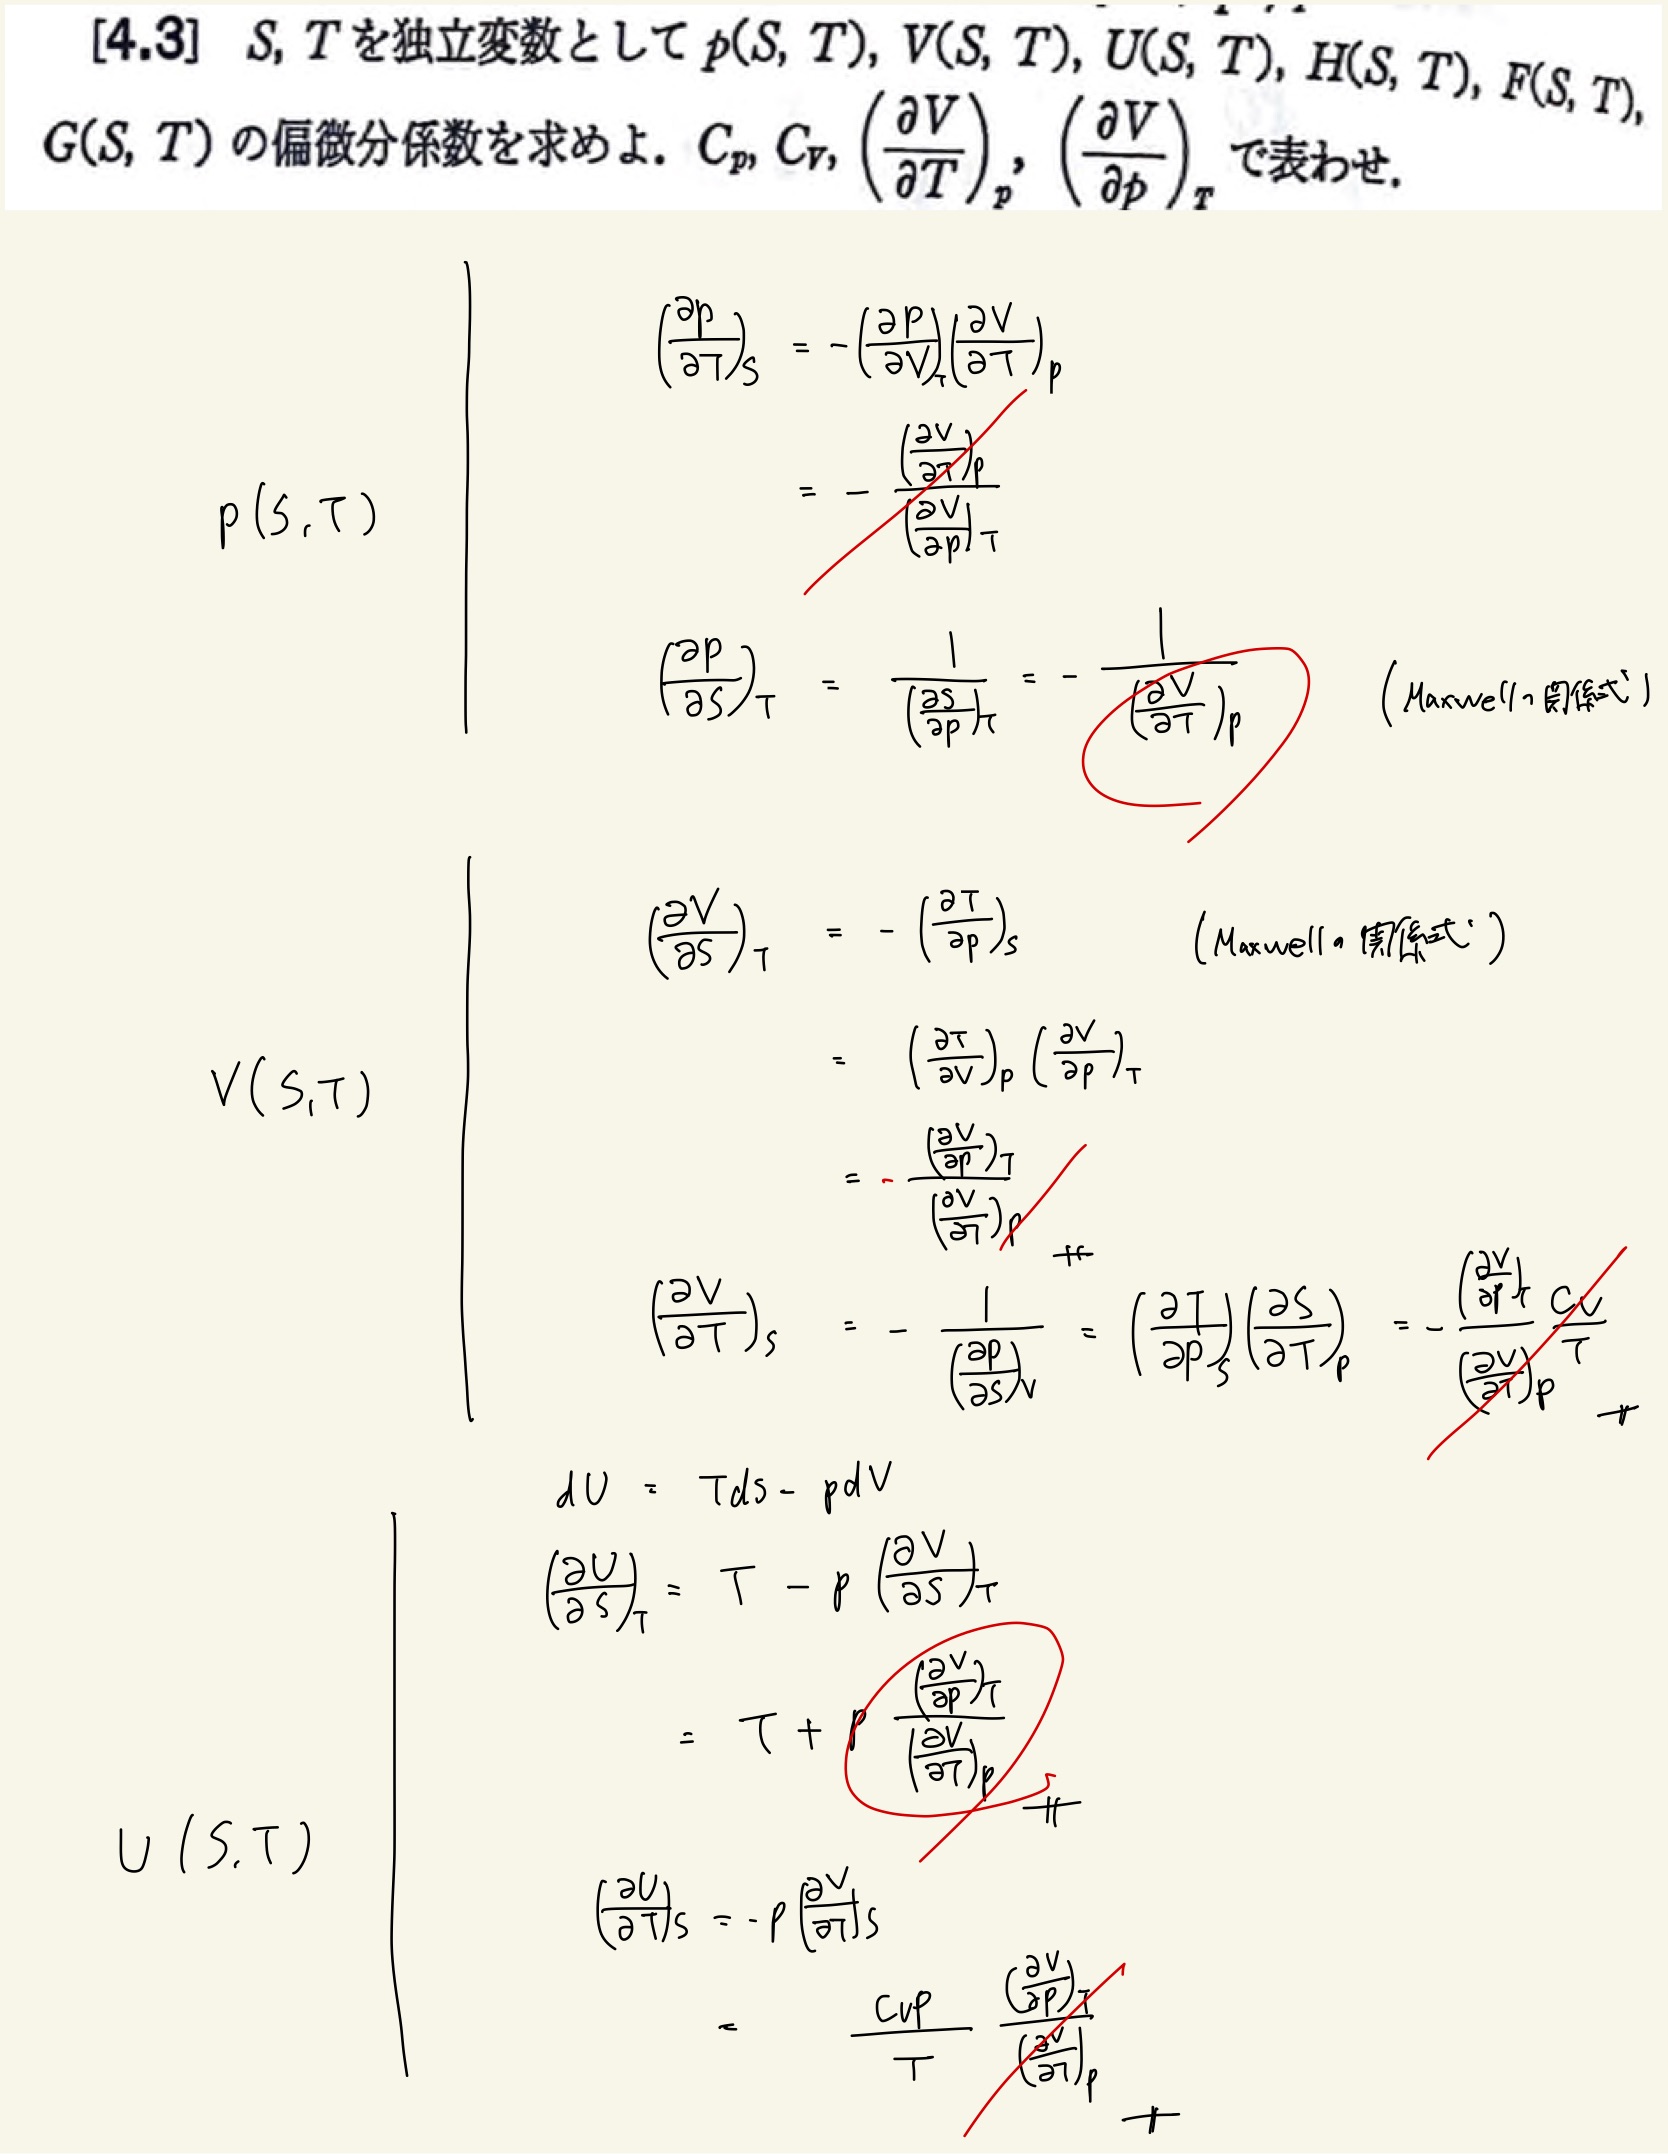 [4.3] S, T を独立変数として p(S, T), V(S, T), U(S, T), H(S, T), F(S, T),
G(S, T) の偏微分係数を求めよ. C_p, C_V, (∂V/∂T)_p, (∂V/∂p)_T で表わせ.
p(S,T)
(∂p/∂T)_S = -(∂p/∂V)_T (∂V/∂T)_p
= - (∂V/∂T)_p / (∂V/∂p)_T
(∂p/∂S)_T = 1/(∂S/∂p)_T = - 1/(∂V/∂T)_p (Maxwellの関係式)
V(S,T)
(∂V/∂S)_T = - (∂T/∂p)_S (Maxwellの関係式)
= (∂T/∂V)_p (∂V/∂p)_T
= - (∂V/∂p)_T / (∂V/∂T)_p
(∂V/∂T)_S = - 1/(∂p/∂S)_V = (∂T/∂p)_S (∂S/∂T)_p = - (∂V/∂p)_T / (∂V/∂T)_p Cv/T
dU = TdS - pdV
U(S,T)
(∂U/∂S)_T = T - p (∂V/∂S)_T
= T + p (∂V/∂p)_T / (∂V/∂T)_p
(∂U/∂T)_S = -p (∂V/∂T)_S
= Cvp/T (∂V/∂p)_T / (∂V/∂T)_p